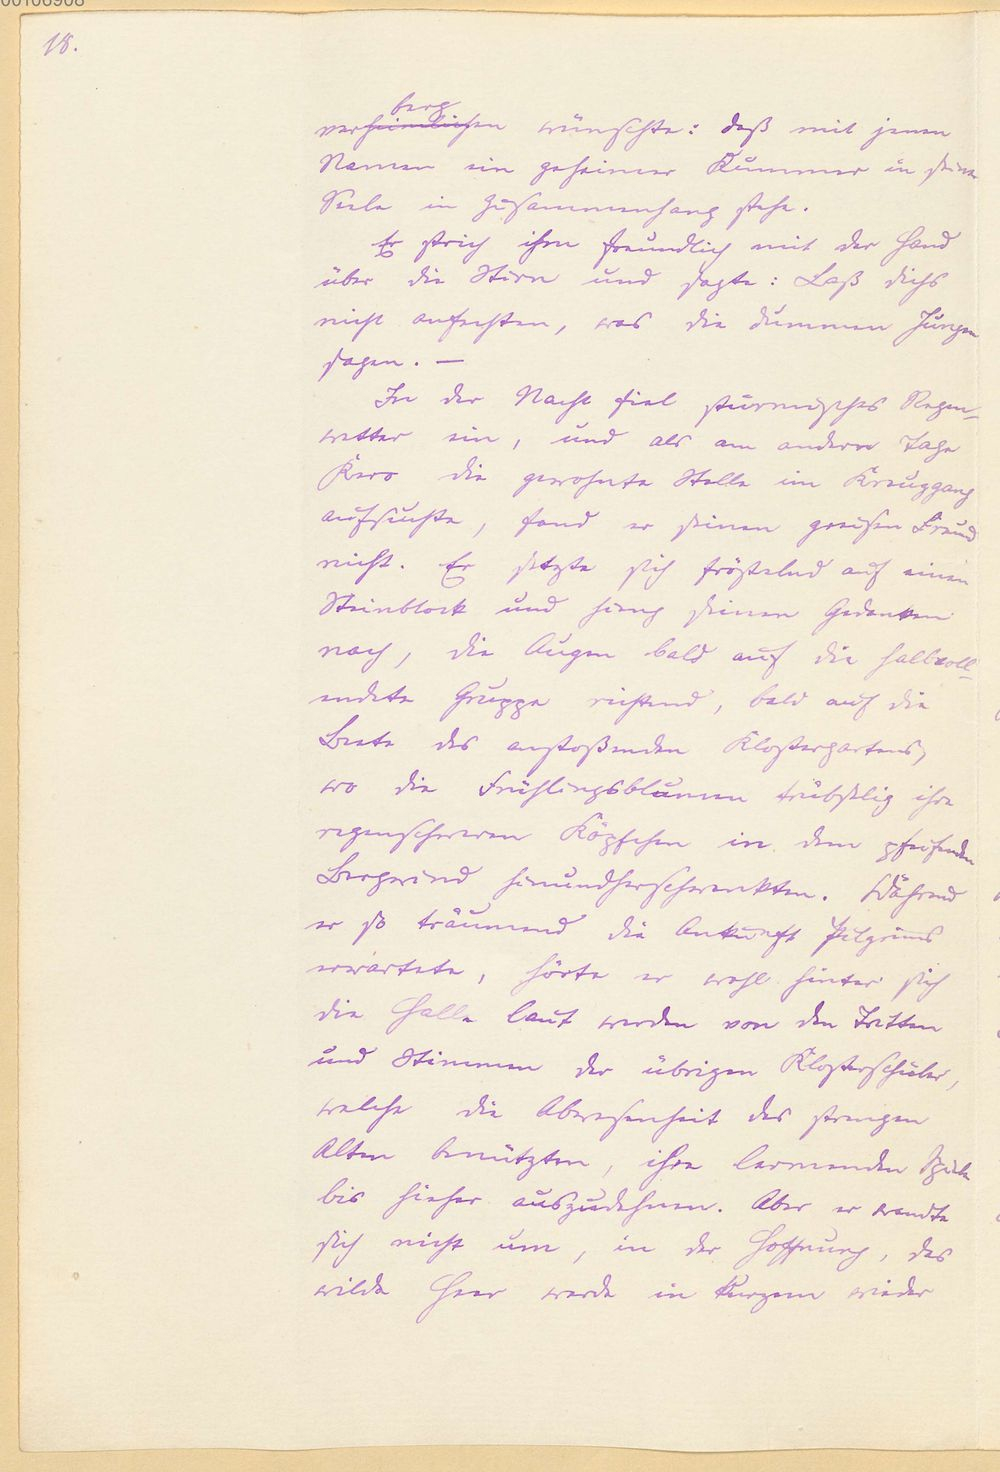 00106908
18.
berg
verheimlichen wünschte: daß mit jenem
Namen ein geheimer Kummer in seiner
Seele in Zusammenhang stehe.
Er strich ihm freundlich mit der Hand
über die Stirn und sagte: Laß dichs
nicht anfechten, was die dummen Jungen
sagen. —
In der Nacht fiel stürmisches Regen-
wetter ein, und als am andern Tage
Kero die gewohnte Stelle im Kreuzgang
aufsuchte, fand er seinen greisen Freund
nicht. Er setzte sich fröstelnd auf einen
Steinblock und hieng seinen Gedanken
nach, die Augen bald auf die halbvoll-
endete Gruppe richtend, bald auf die
Beete des anstoßenden Klostergartens,
wo die Frühlingsblumen trübselig ihre
regenschweren Köpfchen in dem pfeifenden
Bergwind hinundherschwenkten. Während
er so träumend die Ankunft Pilgrims
erwartete, hörte er wohl hinter sich
die Halle laut werden von den Tritten
und Stimmen der übrigen Klosterschüler,
welche die Abwesenheit des strengen
Alten benützten, ihre lärmenden Spiele
bis hieher auszudehnen. Aber er wandte
sich nicht um, in der Hoffnung, das
wilde Heer werde in Kurzem wieder